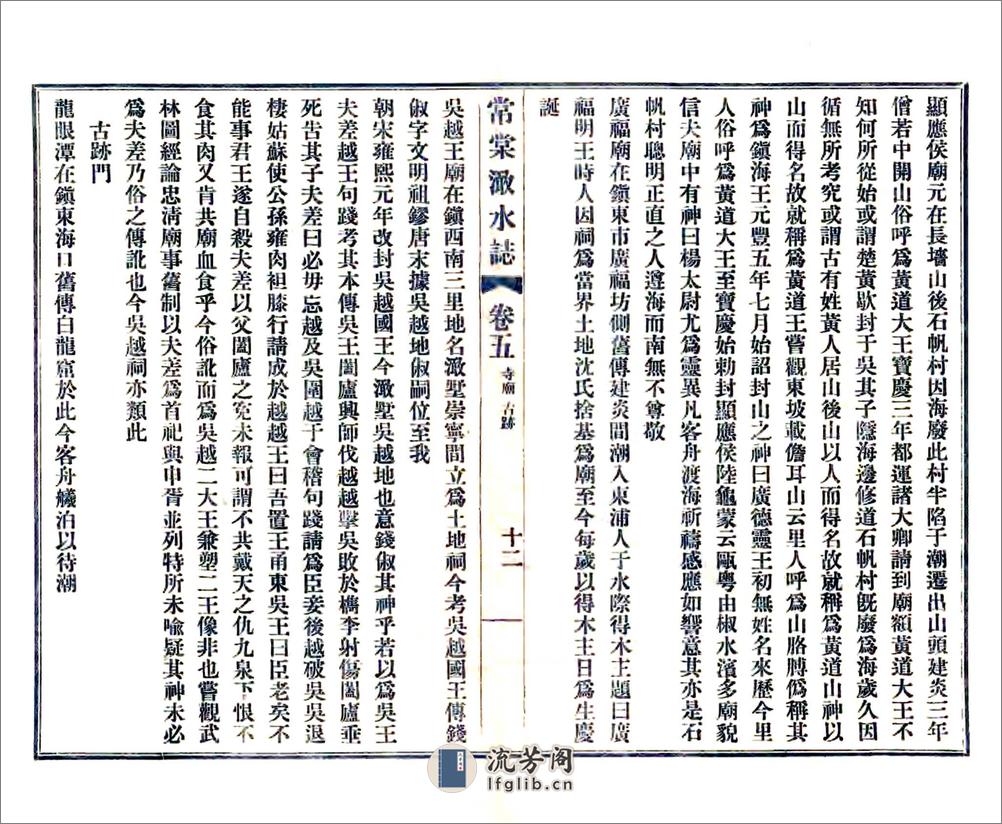 顯應侯廟元在長墻山後石帆村因海廢此村半陷于潮遷出山頭建炎三年
僧若中開山俗呼爲黃道大王寶慶三年都運諸大卿請到廟額黃道大王不
知何所從始或謂楚黃歇封于吳其子隱海邊修道石帆村旣廢爲海歲久因
循無所考究或謂古有姓黃人居山後山以人而得名故就稱爲黃道山神以
山而得名故就稱爲黃道王嘗觀東坡載儋耳山云里人呼爲山胳膊僞稱其
神爲鎭海王元豐五年七月始詔封山之神曰廣德靈王初無姓名來歷今里
人俗呼爲黃道大王至寶慶始勅封顯應侯陸龜蒙云甌粤由椒水濱多廟貌
信夫廟中有神曰楊太尉尤爲靈異凡客舟渡海祈禱感應如響意其亦是石
帆村聰明正直之人遵海而南無不尊敬
廣福廟在鎭東市廣福坊側舊傳建炎間潮入東浦人于水際得木主題曰廣
福明王時人因祠爲當界土地沈氏捨基爲廟至今每歲以得木主日爲生慶
誕
常棠澉水誌
卷五
寺廟 古跡
十二
吳越王廟在鎭西南三里地名澉墅崇寧間立爲土地祠今考吳越國王傳錢
俶字文明祖鏐唐末據吳越地俶嗣位至我
朝宋雍熙元年改封吳越國王今澉墅吳越地也意錢俶其神乎若以爲吳王
夫差越王句踐考其本傳吳王闔廬興師伐越越擊吳敗於檇李射傷闔廬垂
死告其子夫差曰必毋忘越及吳圍越于會稽句踐請爲臣妾後越破吳吳退
棲姑蘇使公孫雍肉袒膝行請成於越越王曰吾置王甬東吳王曰臣老矣不
能事君王遂自殺夫差以父闔廬之寃未報可謂不共戴天之仇九泉下恨不
食其肉又肯共廟血食乎今俗訛而爲吳越二大王兼塑二王像非也嘗觀武
林圖經論忠清廟事舊制以夫差爲首祀與申胥並列特所未喩疑其神未必
爲夫差乃俗之傳訛也今吳越祠亦類此
古跡門
龍眼潭在鎭東海口舊傳白龍窟於此今客舟艤泊以待潮
流芳阁
lfglib.cn